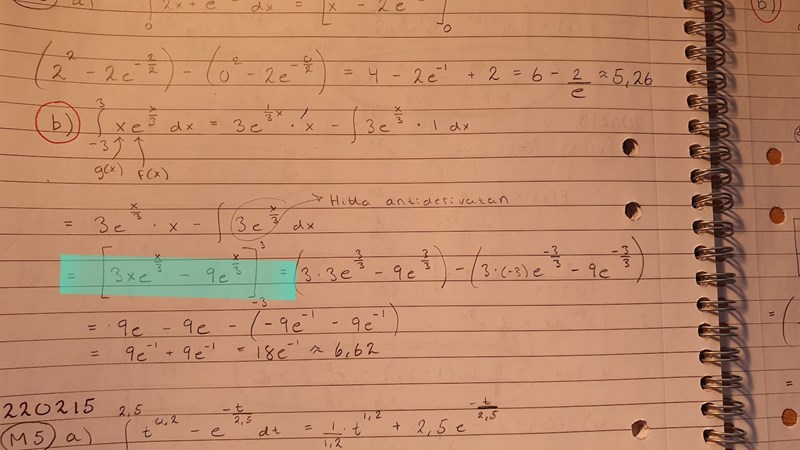 a) ∫₀ 2x + e dx = [x - 2e ]₀
(2² - 2e^(-2/2)) - (0² - 2e^(-0/2)) = 4 - 2e⁻¹ + 2 = 6 - 2/e ≈ 5,26
b) ∫₋₃³ xe^(x/3) dx = 3e^(1/3 x) · x - ∫ 3e^(x/3) · 1 dx
g(x) f(x)
= 3e^(x/3) · x - ∫ 3e^(x/3) dx → Hitta antiderivatan
= [3xe^(x/3) - 9e^(x/3)]₋₃³ = (3·3e^(3/3) - 9e^(3/3)) - (3·(-3)e^(-3/3) - 9e^(-3/3))
= 9e - 9e - (-9e⁻¹ - 9e⁻¹)
= 9e⁻¹ + 9e⁻¹ = 18e⁻¹ ≈ 6,62
220215
M5 a) ∫^2,5 t^0,2 - e^(-t/2,5) dt = 1/1,2 · t^1,2 + 2,5 e^(-t/2,5)
b)